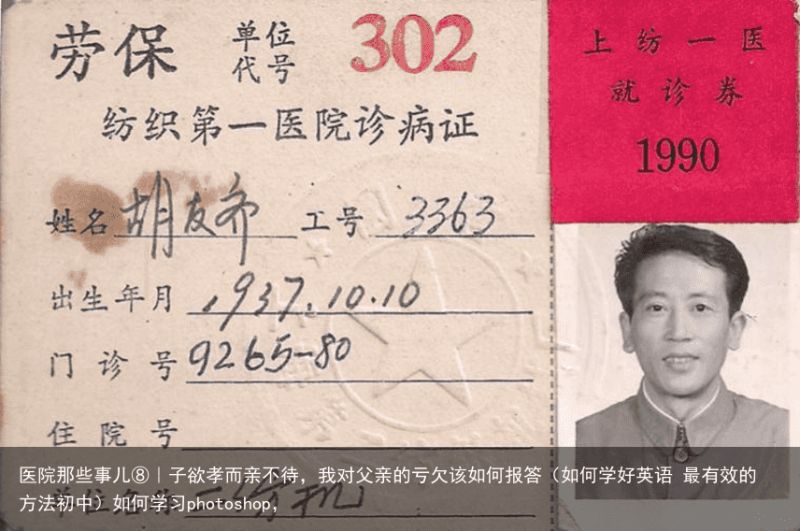 劳保 单位代号 302
纺织第一医院诊病证
姓名 胡友齐 工号 3363
出生年月 1937.10.10
门诊号 9265-80
住院号
上纺一医
就诊券
1990
医院那些事儿⑧｜子欲孝而亲不待，我对父亲的亏欠该如何报答（如何学好英语 最有效的
方法初中）如何学习photoshop，